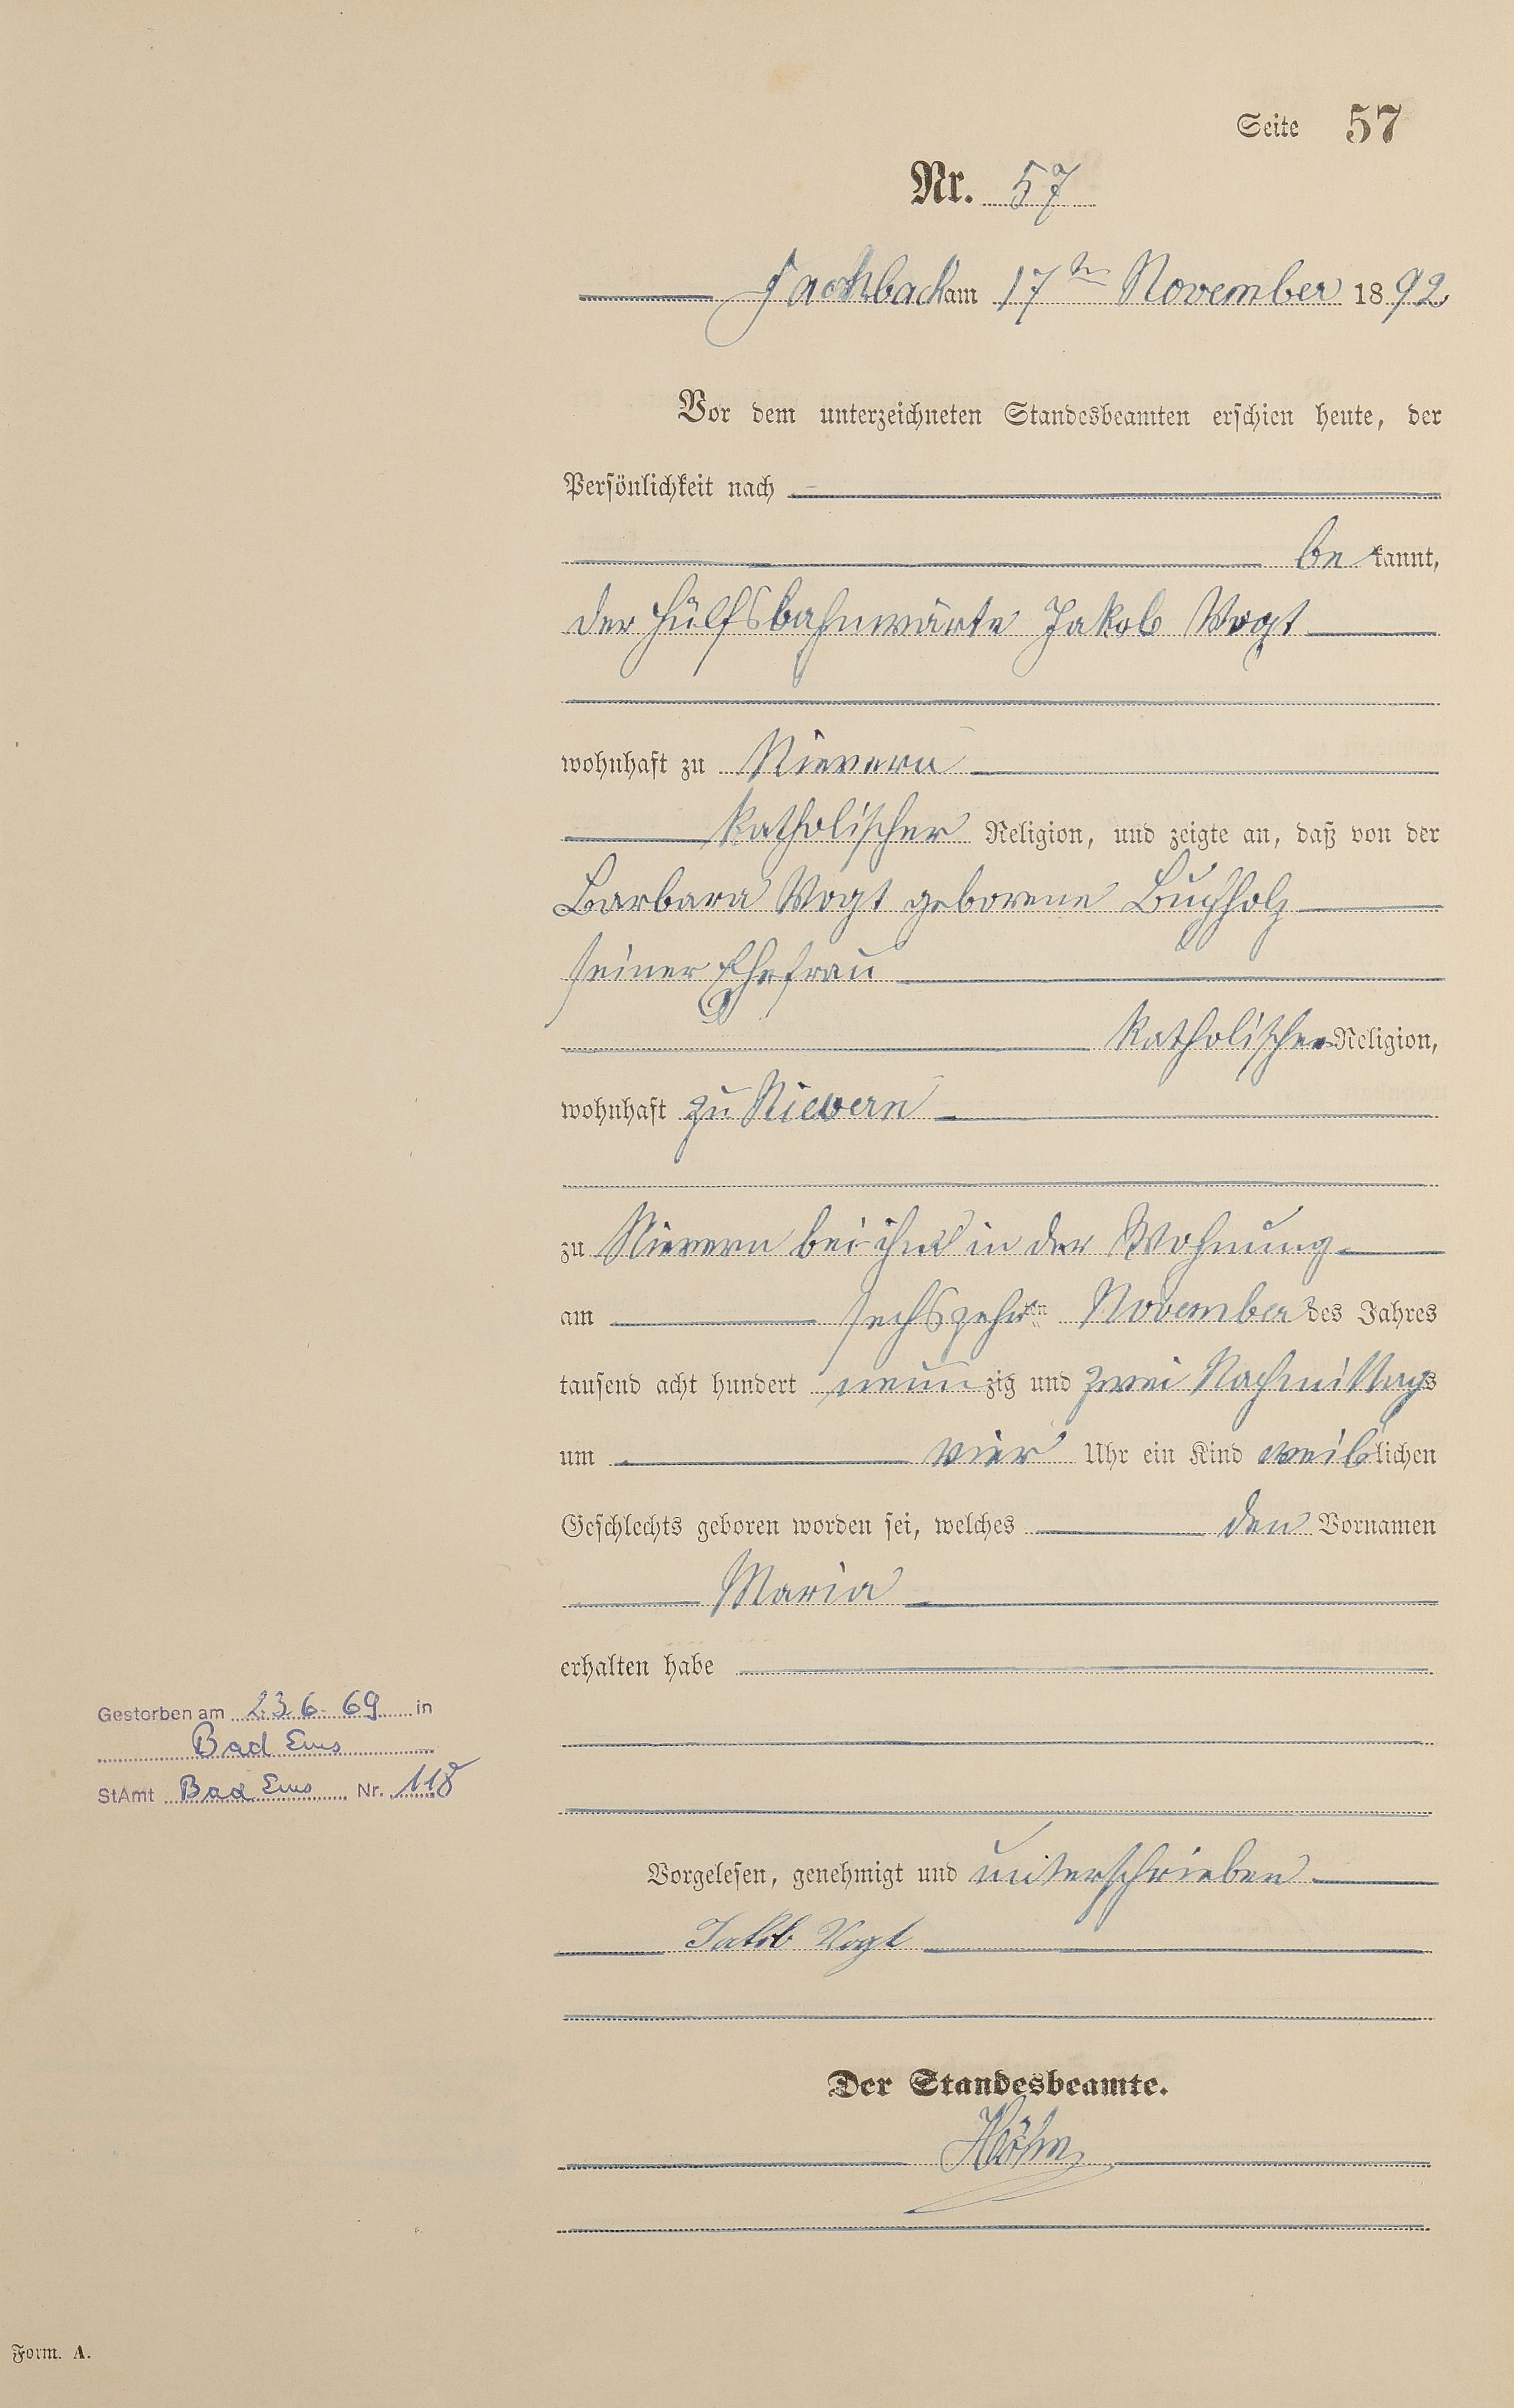 Seite 57
Nr. 57
Fachbach am 17ten November 1892
Vor dem unterzeichneten Standesbeamten erschien heute, der
Persönlichkeit nach
be kannt,
der Hülfsbahnwärter Jakob Vogt
wohnhaft zu Nievern
katholischer Religion, und zeigte an, daß von der
Barbara Vogt geborene Buchholz
seiner Ehefrau
katholischer Religion,
wohnhaft zu Nievern
zu Nievern bei ihm in der Wohnung
am sechszehnten November des Jahres
tausend acht hundert neunzig und zwei Nachmittags
um vier Uhr ein Kind weiblichen
Geschlechts geboren worden sei, welches den Vornamen
Maria
erhalten habe
Gestorben am 23.6.69 in
Bad Ems
StAmt Bad Ems Nr. 118
Vorgelesen, genehmigt und unterschrieben
Jakob Vogt
Der Standesbeamte.
Form. A.